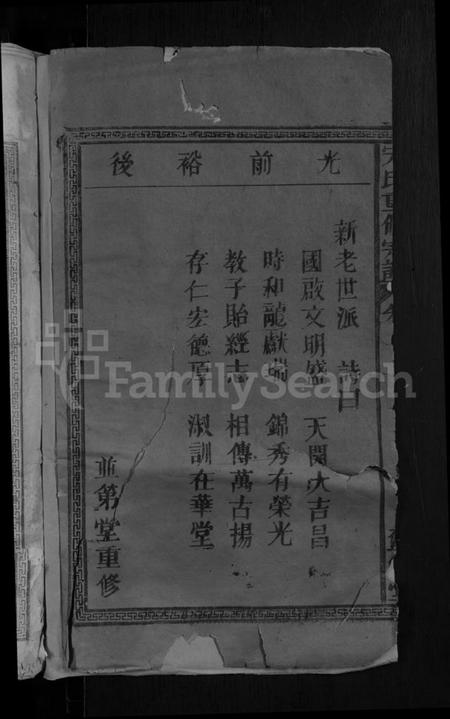 光前裕後
新老世派 詩曰
國啟文明盛 天開大吉昌
時和龍獻瑞 錦秀有榮光
教子貽經志 相傳萬古揚
存仁安德厚 淑訓在華堂
並第堂重修
氏重修宗譜
FamilySearch